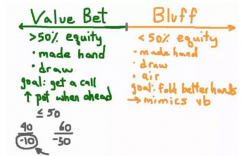 Value Bet
>50% equity
• made hand
• draw
goal: get a call
↑ pot when ahead
≤ 50
40 60
-10 -50
Bluff
<50% equity
• made hand
• draw
• air
goal: fold better hands
→ mimics vb